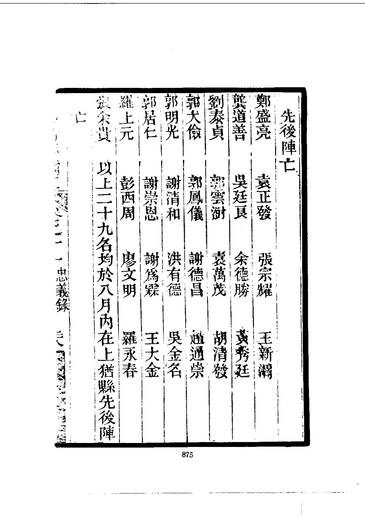 先後陣亡
鄭盛亮 袁正發 張宗耀 王新
龔道善 吳廷良 余德勝 黃秀廷
劉泰貞 郭雲澍 袁萬茂 胡清發
郭大儉 郭鳳儀 謝德昌 趙通崇
郭明光 謝清和 洪有德 吳金名
郭居仁 謝崇恩 謝爲霖 王大金
羅上元 彭西周 廖文明 羅永春
張余貴 以上二十九名均於八月內在上猶縣先後陣
亡
忠義錄
875